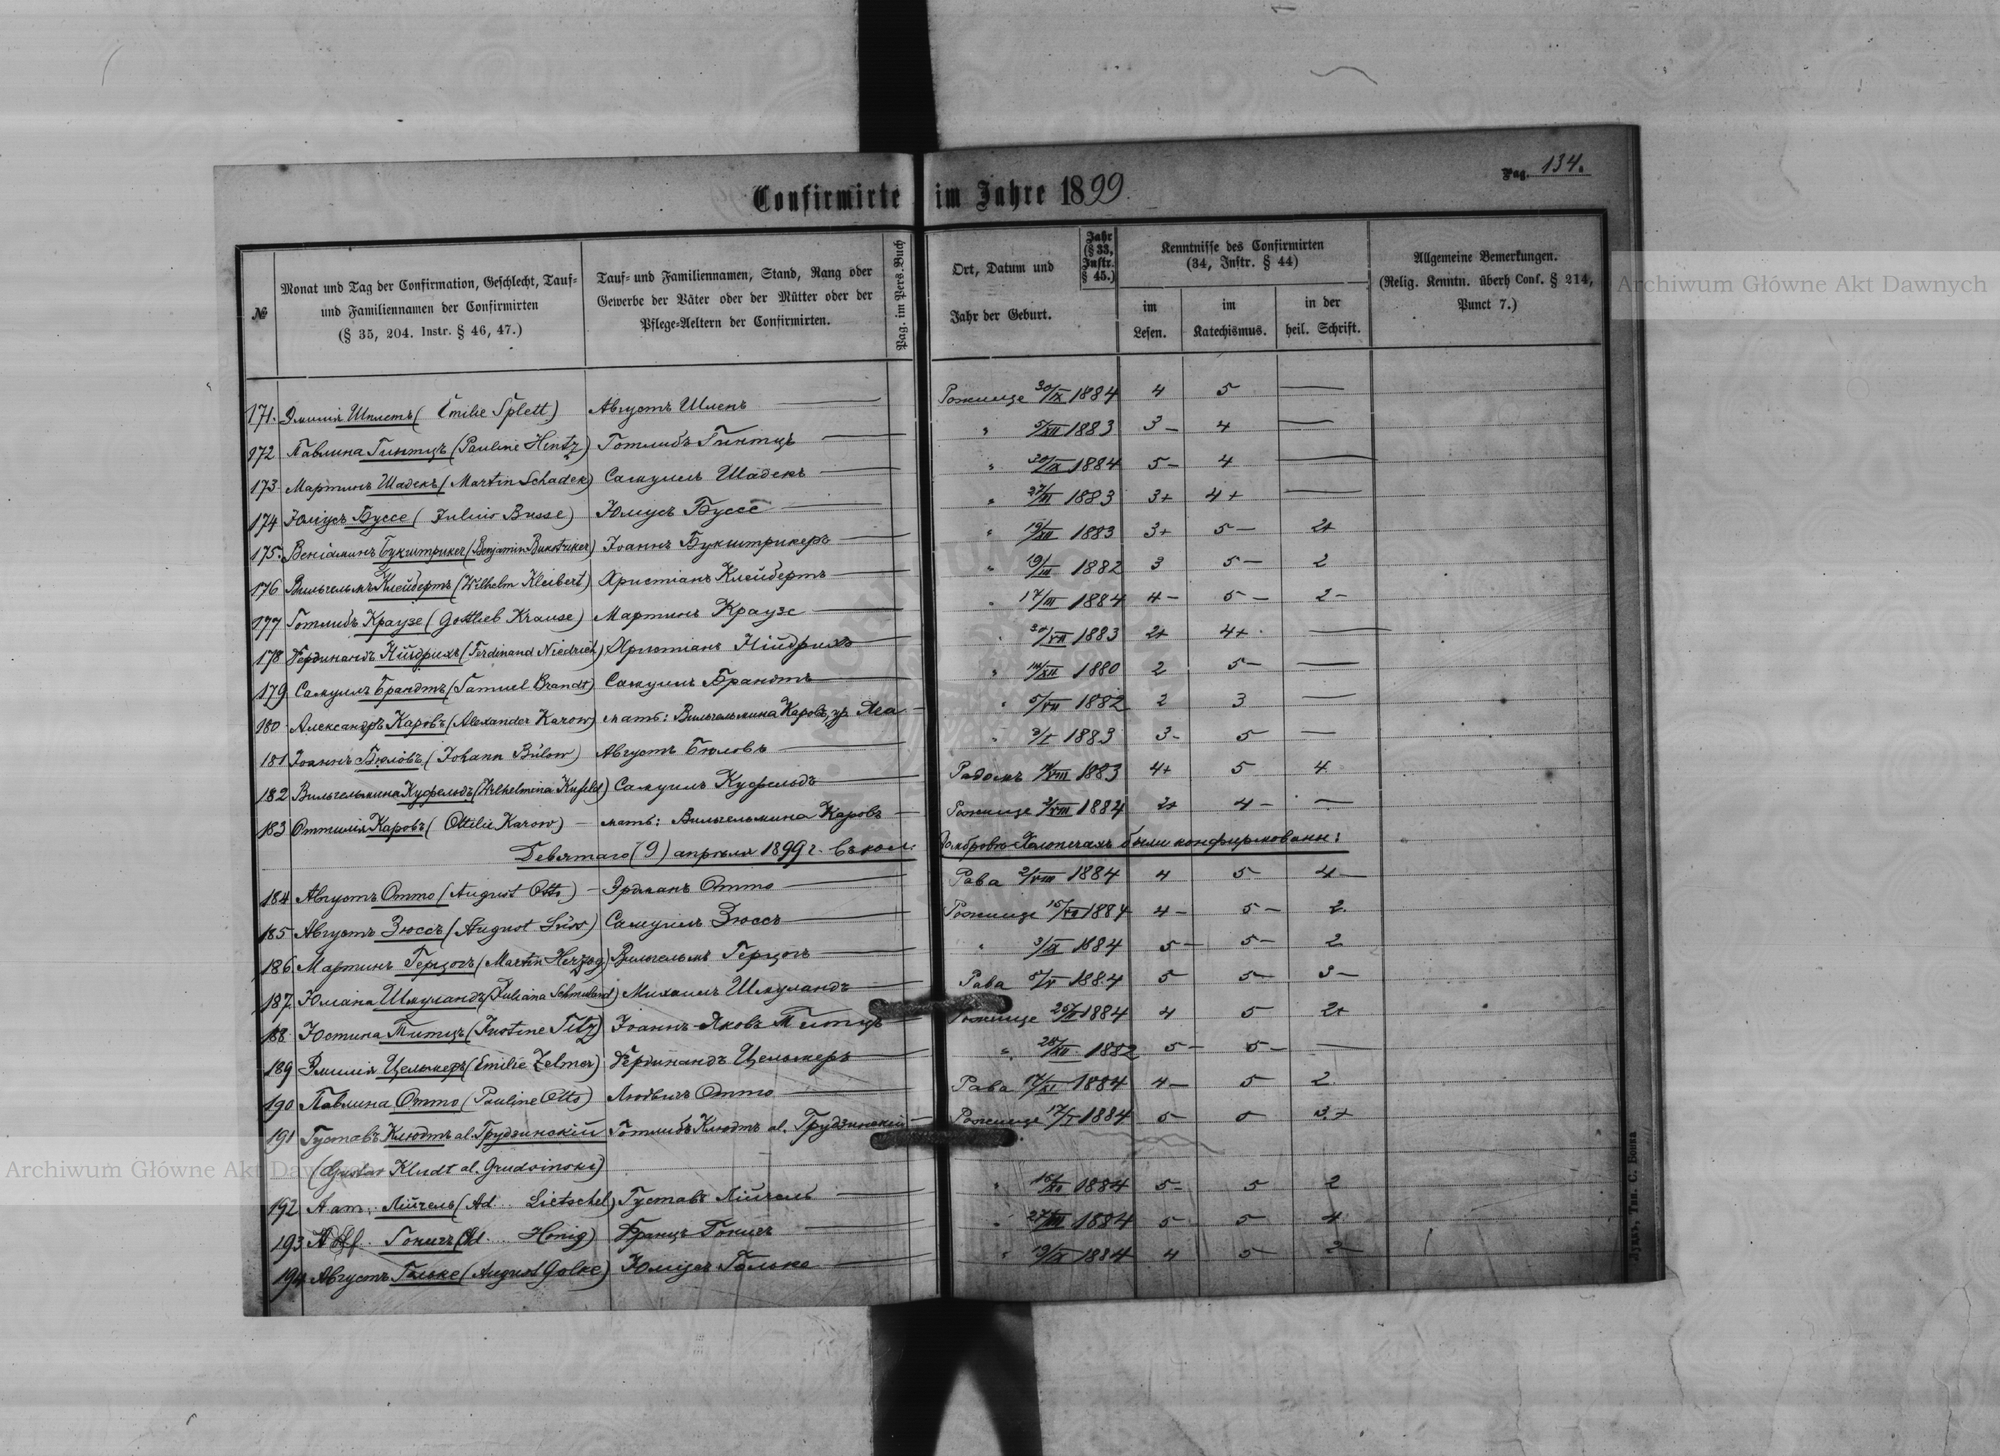 Confirmirte im Jahre 1899.
Pag. 134.
№
Monat und Tag der Confirmation, Geschlecht, Tauf-
und Familiennamen der Confirmirten
(§ 35, 204. Instr. § 46, 47.)
Tauf- und Familiennamen, Stand, Rang oder
Gewerbe der Väter oder der Mütter oder der
Pflege-Aeltern der Confirmirten.
Pag. im Pers. Buch
Ort, Datum und
Jahr der Geburt.
Jahr
(§ 33,
Instr.
§ 45.)
Kenntnisse des Confirmirten
(34, Instr. § 44)
im
Lesen.
im
Katechismus.
in der
heil. Schrift.
Allgemeine Bemerkungen.
(Relig. Kenntn. überh Conf. § 214,
Punct 7.)
171. Эмилія Шплетъ (Emilie Splett) Августъ Рожище 30/IX 1884 4 5 —
172 Павлина Гинтцъ (Pauline Hentz) Готлибъ Гинтцъ — " /XII 1883 3 – 4 —
173 Мартинъ Шадекъ (Martin Schadek) Самуилъ Шадекъ — " 30/IX 1884 5 – 4 —
174 Юліусъ Буссе (Julius Busse) Юліусъ Буссе — " 1883 3+ 4+ —
175. Веніаминъ Букштрикеръ (Benjamin) Іоаннъ Букштрикеръ — " 19/XII 1883 3+ 5 – 2+
176 Вильгельмъ Клейбертъ (Wilhelm Kleibert) Христіанъ Клейбертъ — " 19/III 1882 3 5 – 2
177 Готлибъ Краузе (Gottlieb Krause) Мартинъ Краузе — " 17/III 1884 4 – 5 – 2 –
178 Фердинандъ Нидрихъ (Ferdinand Niedrich) Христіанъ Нидрихъ — " 30/VII 1883 2+ 4+ —
179 Самуилъ Брандтъ (Samuel Brandt) Самуилъ Брандтъ — " /XII 1880 2 5 – —
180 Александръ Каровъ (Alexander Karow) мать: Вильгельмина Каровъ, ур. — " 5/VII 1882 2 3 —
181 Іоаннъ Бюловъ (Johann Bülow) Августъ Бюловъ — " 3/I 1883 3 – 5 —
182 Вильгельмина Куфельдъ (Wilhelmina Kufeld) Самуилъ Куфельдъ — Радомъ /VIII 1883 4+ 5 4
183 Оттилія Каровъ (Ottilie Karow) — мать: Вильгельмина Каровъ — Рожище /VIII 1884 2+ 4 – —
Девятаго (9) апрѣля 1899 г. въ кол. были конфирмованы:
184 Августъ Отто (August Otto) — Эрдманъ Отто — Рава 2/VIII 1884 4 5 4 –
185 Августъ Зюссъ (August Süss) Самуилъ Зюссъ — Рожище 1884 4 – 5 – 2
186 Мартинъ Герцогъ (Martin Herzog) Вильгельмъ Герцогъ — " 3/IX 1884 5 – 5 – 2
187 Юліана Шмуландъ (Juliana Schmuland) Михаилъ Шмуландъ — Рава 5/V 1884 5 5 3 –
188 Юстина Титцъ (Justine Titz) Іоаннъ Яковъ Титцъ Рожище 1884 4 5 2+
189 Эмилія Цельмеръ (Emilie Zelmer) Фердинандъ Цельмеръ — " 28/XII 1882 5 – 5 – —
190 Павлина Отто (Pauline Otto) Людвигъ Отто — Рава 17/XI 1884 4 – 5 2
191 Густавъ Клюдтъ al. Грудзинскій Готлибъ Клюдтъ al. Грудзинскій — Рожище 1884 5 5 3+
(Gustav Kludt al. Grudsinski)
192 Густавъ — " 1884 5 – 5 2
193 Гонигъ (Honig) Францъ Гонигъ — " 1884 5 5 4
194 Августъ Гольке (August Golke) Юліусъ Гольке — " 19/IX 1884 4 5 2 –
Archiwum Główne Akt Dawnych
Archiwum Główne Akt Dawnych